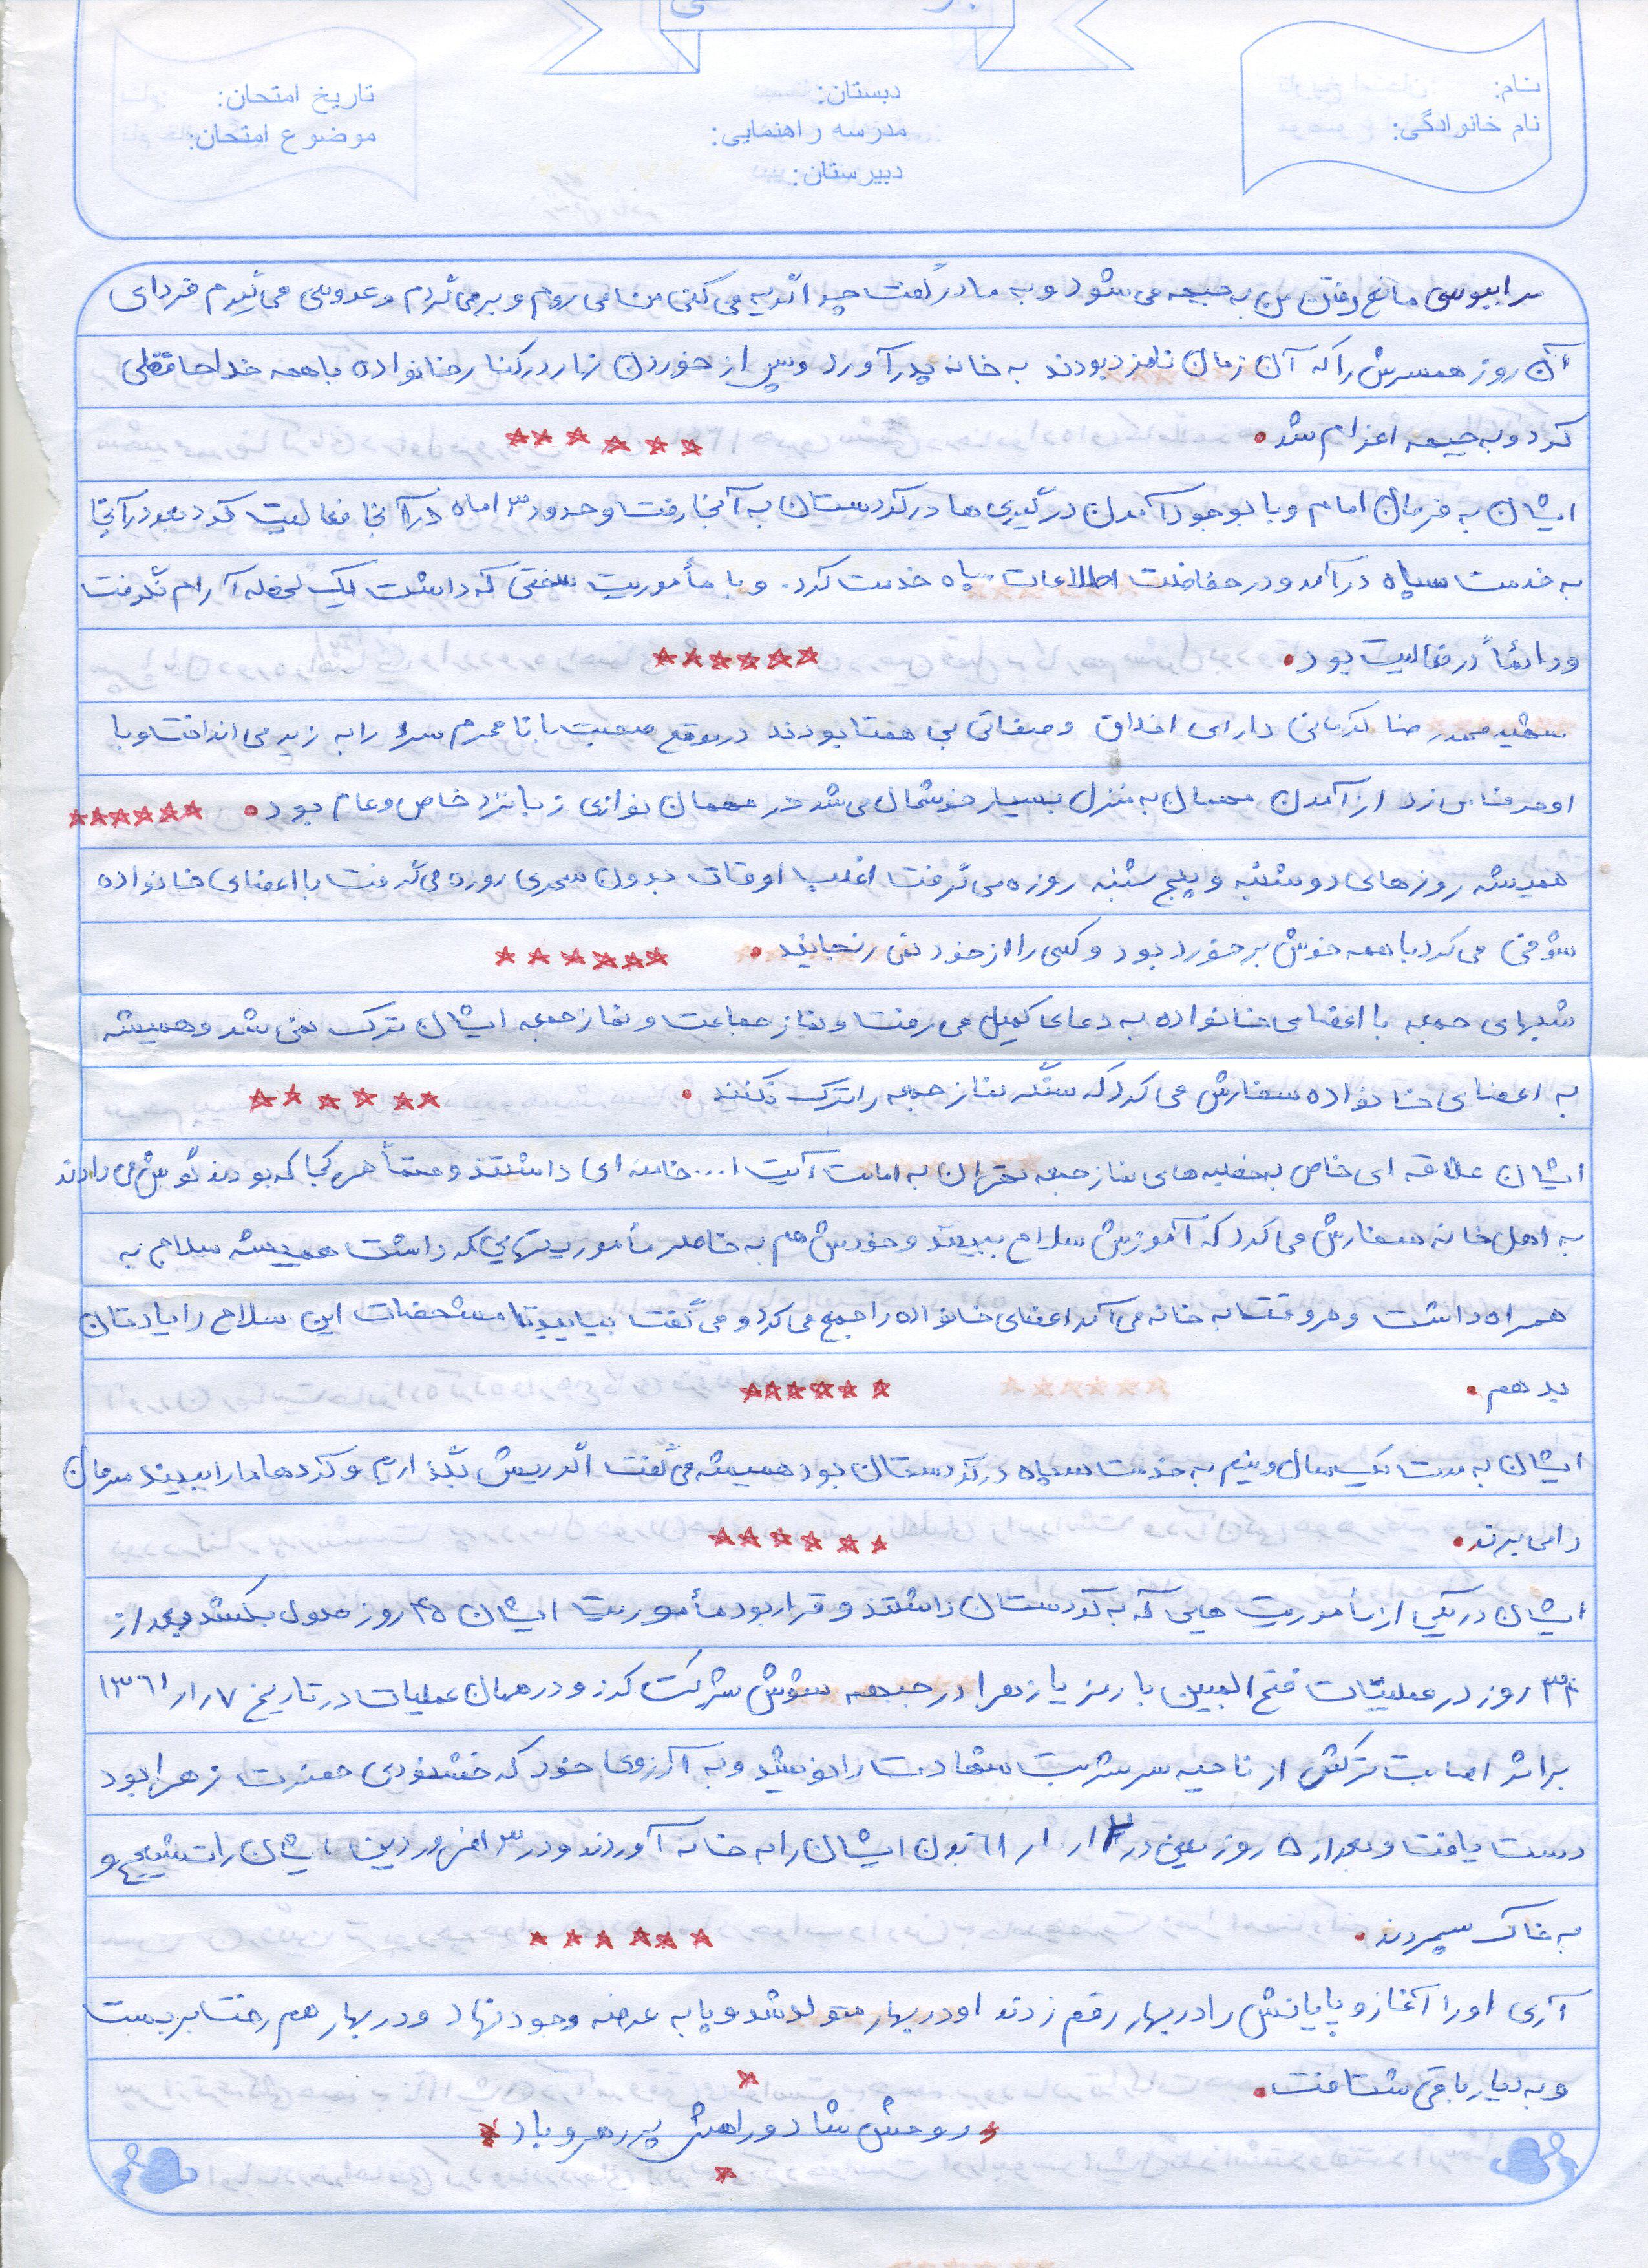 نام:
نام خانوادگی:
دبستان:
مدرسه راهنمایی:
دبیرستان:
تاریخ امتحان:
موضوع امتحان:
مرا ببوسی مانع رفتن من به جبهه می شود و به مادر گفت چرا گریه می کنی من می روم و برمی گردم و عروسی می گیرم فردای
آن روز همسرش را که آن زمان نامزد بودند به خانه پدر آورد و پس از خوردن نهار در کنار خانواده با همه خداحافظی
کرد و به جبهه اعزام شد.
ایشان به فرمان امام و با بوجود آمدن درگیری ها در کردستان به آنجا رفت و حدود ۳ ماه در آنجا فعالیت کرد بعد در آنجا
به خدمت سپاه درآمد و در حفاظت اطلاعات سپاه خدمت کرد. و با مأموریت سختی که داشت یک لحظه آرام نگرفت
و دائماً در فعالیت بود.
شهید محمدرضا کرمانی دارای اخلاق و صفاتی بی همتا بودند در موقع صحبت با نامحرم سرش را به زیر می انداخت و با
او حرف می زد از آمدن مهمان به منزل بسیار خوشحال می شد در مهمان نوازی زبانزد خاص و عام بود.
همیشه روزهای دوشنبه و پنج شنبه روزه می گرفت اغلب اوقات بدون سحری روزه می گرفت با اعضای خانواده
شوخی می کرد با همه خوش برخورد بود و کسی را از خود نمی رنجانید.
شبهای جمعه با اعضای خانواده به دعای کمیل می رفت و نماز جماعت و نماز جمعه ایشان ترک نمی شد و همیشه
به اعضای خانواده سفارش می کرد که سنگر نماز جمعه را ترک نکنند.
ایشان علاقه ای خاص به خطبه های نماز جمعه تهران به امامت آیت ا... خامنه ای داشتند و حتماً هر کجا که بودند گوش می دادند
به اهل خانه سفارش می کرد که آموزش سلاح ببینند و خودش هم به خاطر مأموریتهایی که داشت همیشه سلاح به
همراه داشت و هر وقت به خانه می آمد اعضای خانواده را جمع می کرد و می گفت بیایید تا مشخصات این سلاح را یادتان
بدهم.
ایشان به مدت یک سال و نیم به خدمت سپاه در کردستان بود همیشه می گفت اگر ریش بگذاریم و کردها ما را ببینند سرمان
را می برند.
ایشان در یکی از مأموریت هایی که به کردستان داشتند و قرار بود مأموریت ایشان ۴۵ روز طول بکشد و بعد از
روز در عملیات فتح المبین با رمز یا زهرا در جبهه شوش شرکت کرد و در همان عملیات در تاریخ ۱۳۶۱/۱/۷
بر اثر اصابت ترکش از ناحیه سر شربت شهادت را نوشید و به آرزوی خود که خشنودی حضرت زهرا بود
دست یافت و بعد از ۵ روز یعنی در ۶۱/۱/۱۲ بدن ایشان را به خانه آوردند و در ۱۳ فروردین ایشان را تشییع و
به خاک سپردند.
آری او را آغاز و پایانش را در بهار رقم زدند او در بهار متولد شد و پا به عرصه وجود نهاد و در بهار هم رخت بربست
و به دیار باقی شتافت.
روحش شاد و راهش پر رهرو باد